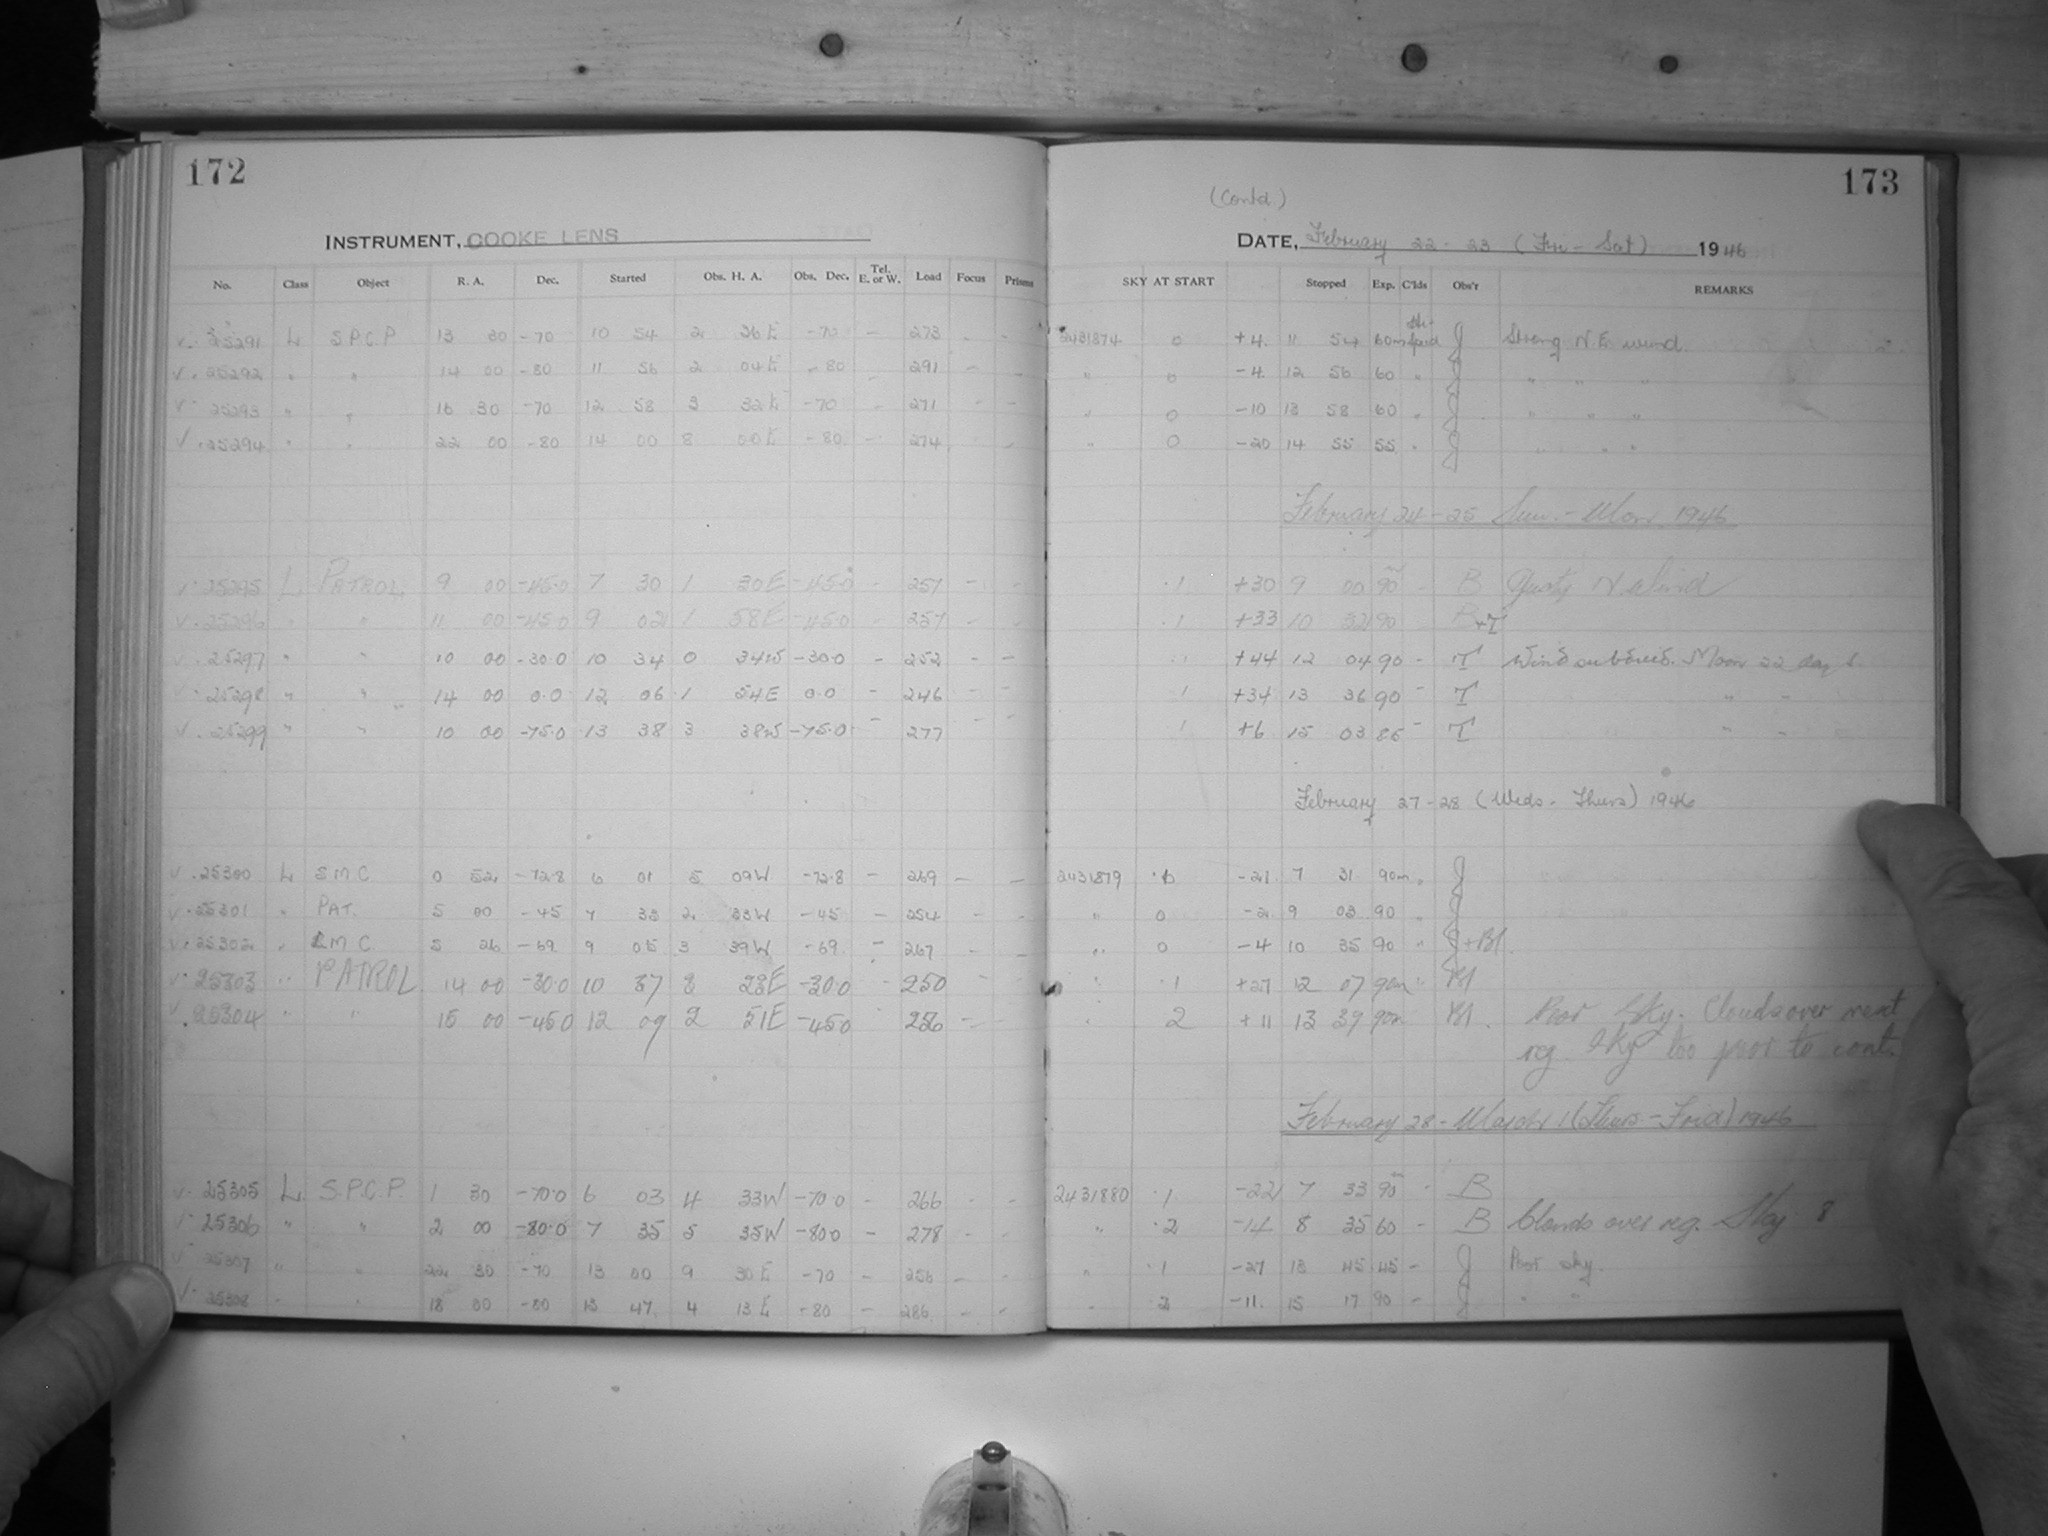 172
173
(Contd.)
INSTRUMENT, COOKE LENS
DATE, February 22-23 (Fri - Sat) 1946
No. Class Object R. A. Dec. Started Obs. H. A. Obs. Dec. Tel. E. or W. Load Focus Prisms SKY AT START Stopped Exp. C'lds Obs'r REMARKS
v. 25291 L S.P.C.P 13 30 -70 10 54 2 36E -70 - 273 - - 2431874 0 +4 11 54 60m J Strong N.E. wind.
v. 25292 " " 14 00 -80 11 56 2 04E -80 - 291 - - " 0 -4 12 56 60 " J " " "
v. 25293 " " 16 30 -70 12 58 3 32E -70 - 271 - - " 0 -10 13 58 60 " J " " "
v. 25294 " " 22 00 -80 14 00 8 00E -80 - 274 - - " 0 -20 14 55 55 " J " " "
February 24-25 Sun.-Mon. 1946
v. 25295 L PATROL 9 00 -45.0 7 30 1 30E -45.0 - 257 - - .1 +30 9 00 90m - B Gusty N. Wind
v. 25296 " " 11 00 -45.0 9 02 1 58E -45.0 - 257 - - .1 +33 10 32 90 B+T
v. 25297 " " 10 00 -30.0 10 34 0 34W -30.0 - 252 - - .1 +44 12 04 90 - T Wind subsided. Moon 22 days
v. 25298 " " 14 00 0.0 12 06 1 54E 0.0 - 246 - - 1 +34 13 36 90 - T " "
v. 25299 " " 10 00 -75.0 13 38 3 38W -75.0 - 277 - - 1 +6 15 03 85 - T " "
February 27-28 (Weds - Thurs) 1946
v. 25300 L S.M.C. 0 52 -72.8 6 01 5 09W -72.8 - 269 - - 2431879 -21 7 31 90m J
v. 25301 " PAT. 5 00 -45 7 33 2 33W -45 - 254 - - " 0 -2 9 03 90 " J
v. 25302 " LMC. 5 26 -69 9 05 3 39W -69 - 267 - - " 0 -4 10 35 90 " J+Bl
v. 25303 " PATROL 14 00 -30.0 10 37 3 23E -30.0 - 250 - - " .1 +27 12 07 90m " Bl
v. 25304 " " 15 00 -45.0 12 09 2 51E -45.0 256 - - " 2 +11 13 39 90m Bl. Poor Sky. Clouds over next
reg. Sky too poor to cont.
February 28 - March 1 (Thurs - Frid) 1946
v. 25305 L. S.P.C.P. 1 30 -70.0 6 03 4 33W -70.0 - 266 - - 2431880 .1 -22 7 33 90m - B
v. 25306 " " 2 00 -80.0 7 35 5 35W -80.0 - 278 - - " .2 -14 8 35 60 - B Clouds over reg. Sky 8
v. 25307 " " 22 30 -70 13 00 9 30E -70 - 256 - - " .1 -27 13 45 45 - J Poor sky.
v. 25308 " " 18 00 -80 13 47 4 13E -80 - 286 - - " .2 -11 15 17 90 - J " "